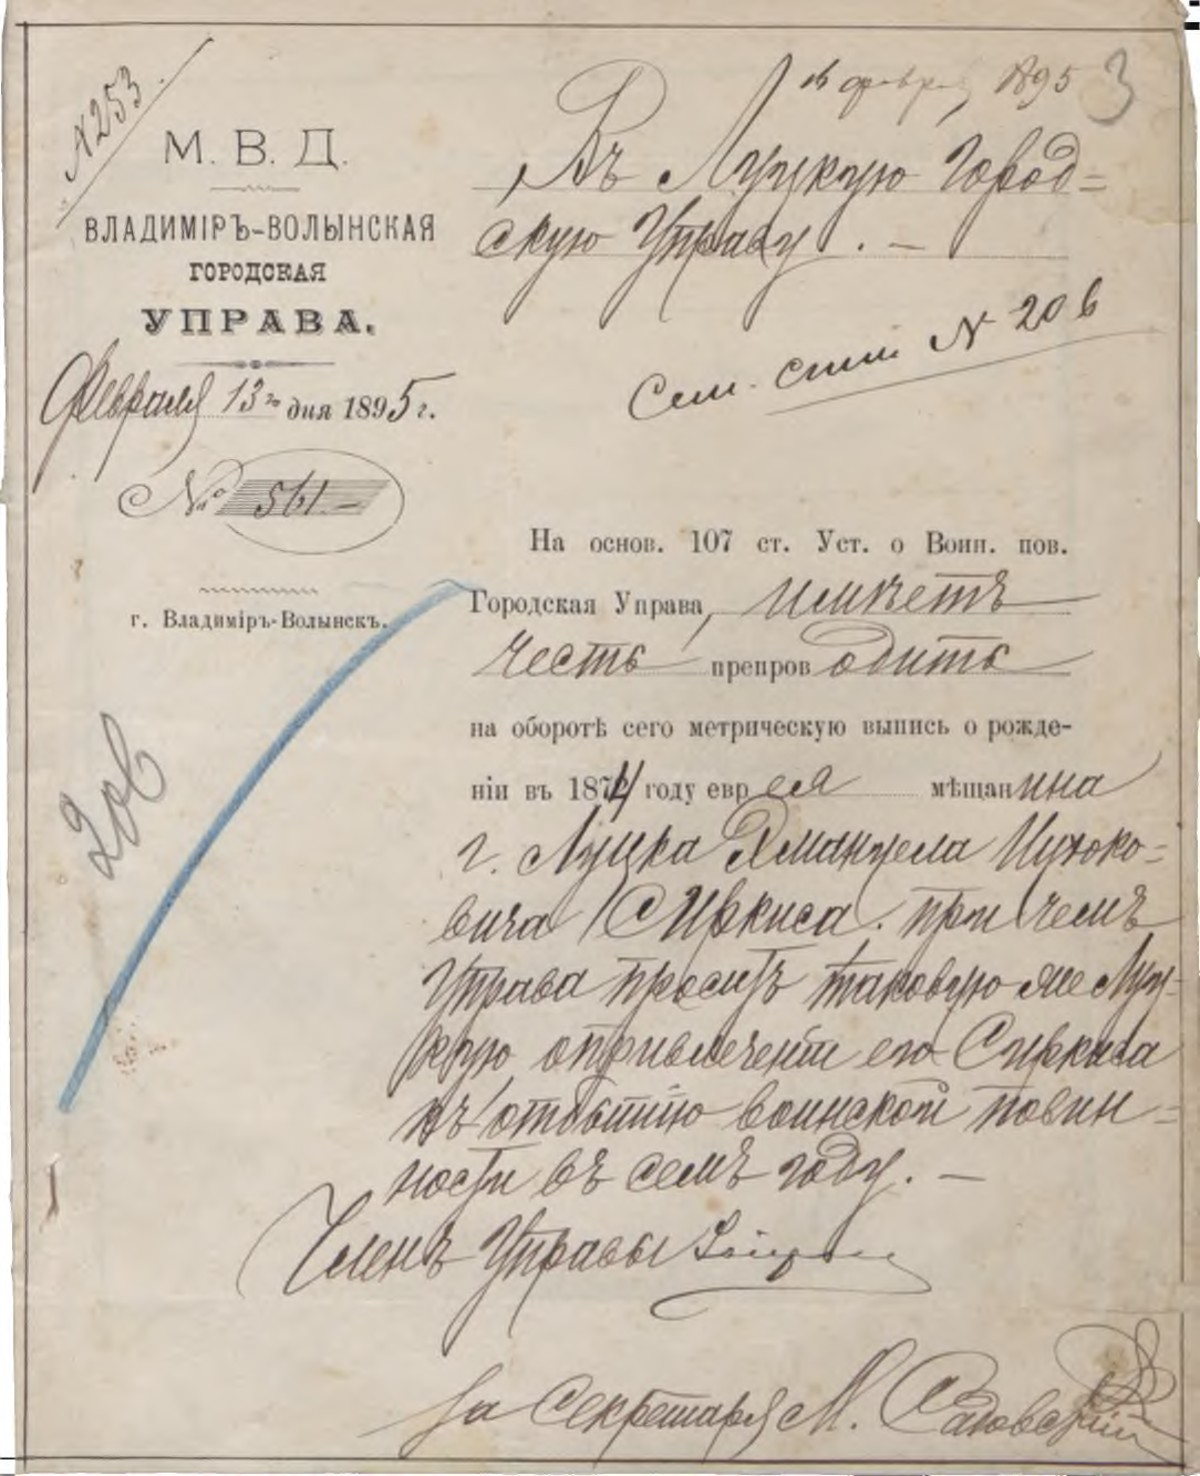 N 253
М. В. Д.
ВЛАДИМІРЪ-ВОЛЫНСКАЯ
ГОРОДСКАЯ
УПРАВА.
Февраля 13го дня 1895 г.
№ 561.—
г. Владиміръ-Волынскъ.
16 февр 1895
3
Въ Луцкую Город=
скую Управу. —
Сем. спис N 206
На основ. 107 ст. Уст. о Воин. пов.
Городская Управа, имѣетъ
честь препроводить
на оборотѣ сего метрическую выпись о рожде-
ніи въ 1874 году еврея мѣщанина
г. Луцка Эмануела Ицко-
вича Сиркиса. при чемъ
Управа проситъ таковую же Луц-
кую о привлеченіи его Сиркиса
къ отбытію воинской повин=
ности въ семъ году. —
Членъ Управы
за Секретаря М. Садовскій
206